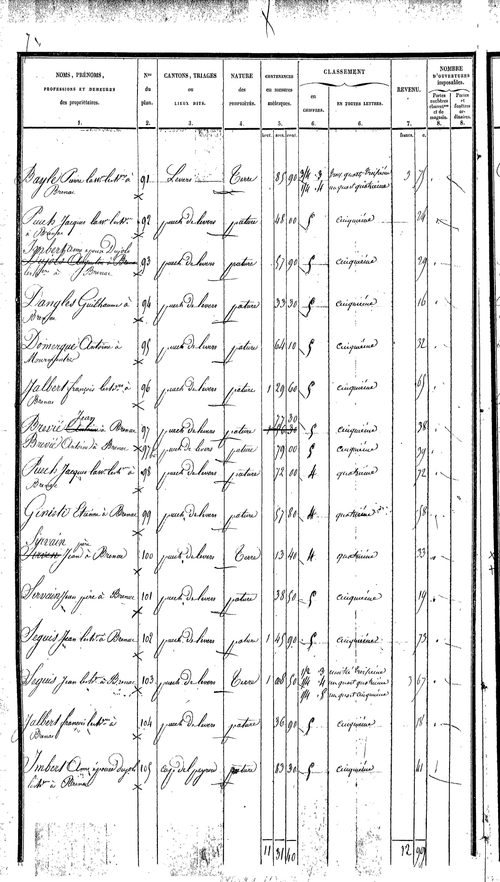 NOMS, PRÉNOMS, PROFESSIONS ET DEMEURES des propriétaires. | Nos du plan. | CANTONS, TRIAGES ou LIEUX DITS. | NATURE des propriétés. | CONTENANCES en mesures métriques. | CLASSEMENT en CHIFFRES. | EN TOUTES LETTRES. | REVENU. | NOMBRE D'OUVERTURES imposables. Portes cochères charret.res et de magasin. | Portes et fenêtres ordinaires.
1. 2. 3. 4. 5. 6. 6. 7. 8. 8.
Bayle Pierre à 91 Levers Terre 85 90 3/4 3 trois quart troisième 3 75
Brenac 1/4 4 un quart quatrième
Puech Jacques 92 puech de levers pature 48 00 5 cinquième 24
à Brenac
Imbert épouse Dujol
93 puech de levers pature 57 90 5 cinquième 29
à Brenac
Dangles Guilhaume à 94 puech de levers pature 33 30 5 cinquième 16
Brenac
Domergue Antoine à 95 puech de levers pature 64 10 5 cinquième 32
Jalbert françois à 96 puech de levers pature 1 29 60 5 cinquième 65
Brenac
Jean 77 30
Brevié à Brenac 97 puech de levers pature 5 cinquième 38
Brevié Antoine à Brenac 97 puech de levers pature 79 00 5 cinquième 39
Puech Jacques à 98 puech de levers pature 72 00 4 quatrième 72
Brenac
Giniés Etienne à Brenac 99 puech de levers pature 57 80 4 quatrième 58
Servain père
Jean à Brenac 100 puech de levers Terre 13 40 4 quatrième 33
Servain Jean père à Brenac 101 puech de levers pature 38 50 5 cinquième 19
Seguis Jean à Brenac 102 puech de levers pature 1 45 90 5 cinquième 73
Seguis Jean à Brenac 103 puech de levers Terre 1 08 50 1/2 3 moitié troisième 3 67
1/4 4 un quart quatrième
1/4 5 un quart cinquième
Jalbert françois à 104 puech de levers pature 36 90 5 cinquième 18
Brenac
Imbert épouse Dujol 105 pature 83 30 5 cinquième 41 1
à Brenac
11 31 40 12 99